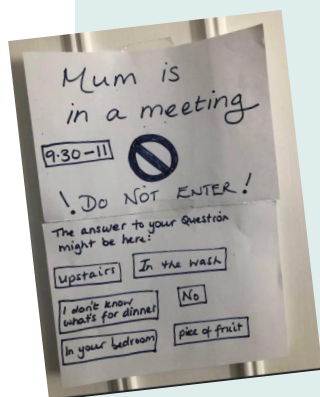 Mum is
in a meeting
9.30-11
! DO NOT ENTER !
The answer to your Question
might be here:
upstairs
In the wash
I don't know
what's for dinner
No
In your bedroom
piece of fruit